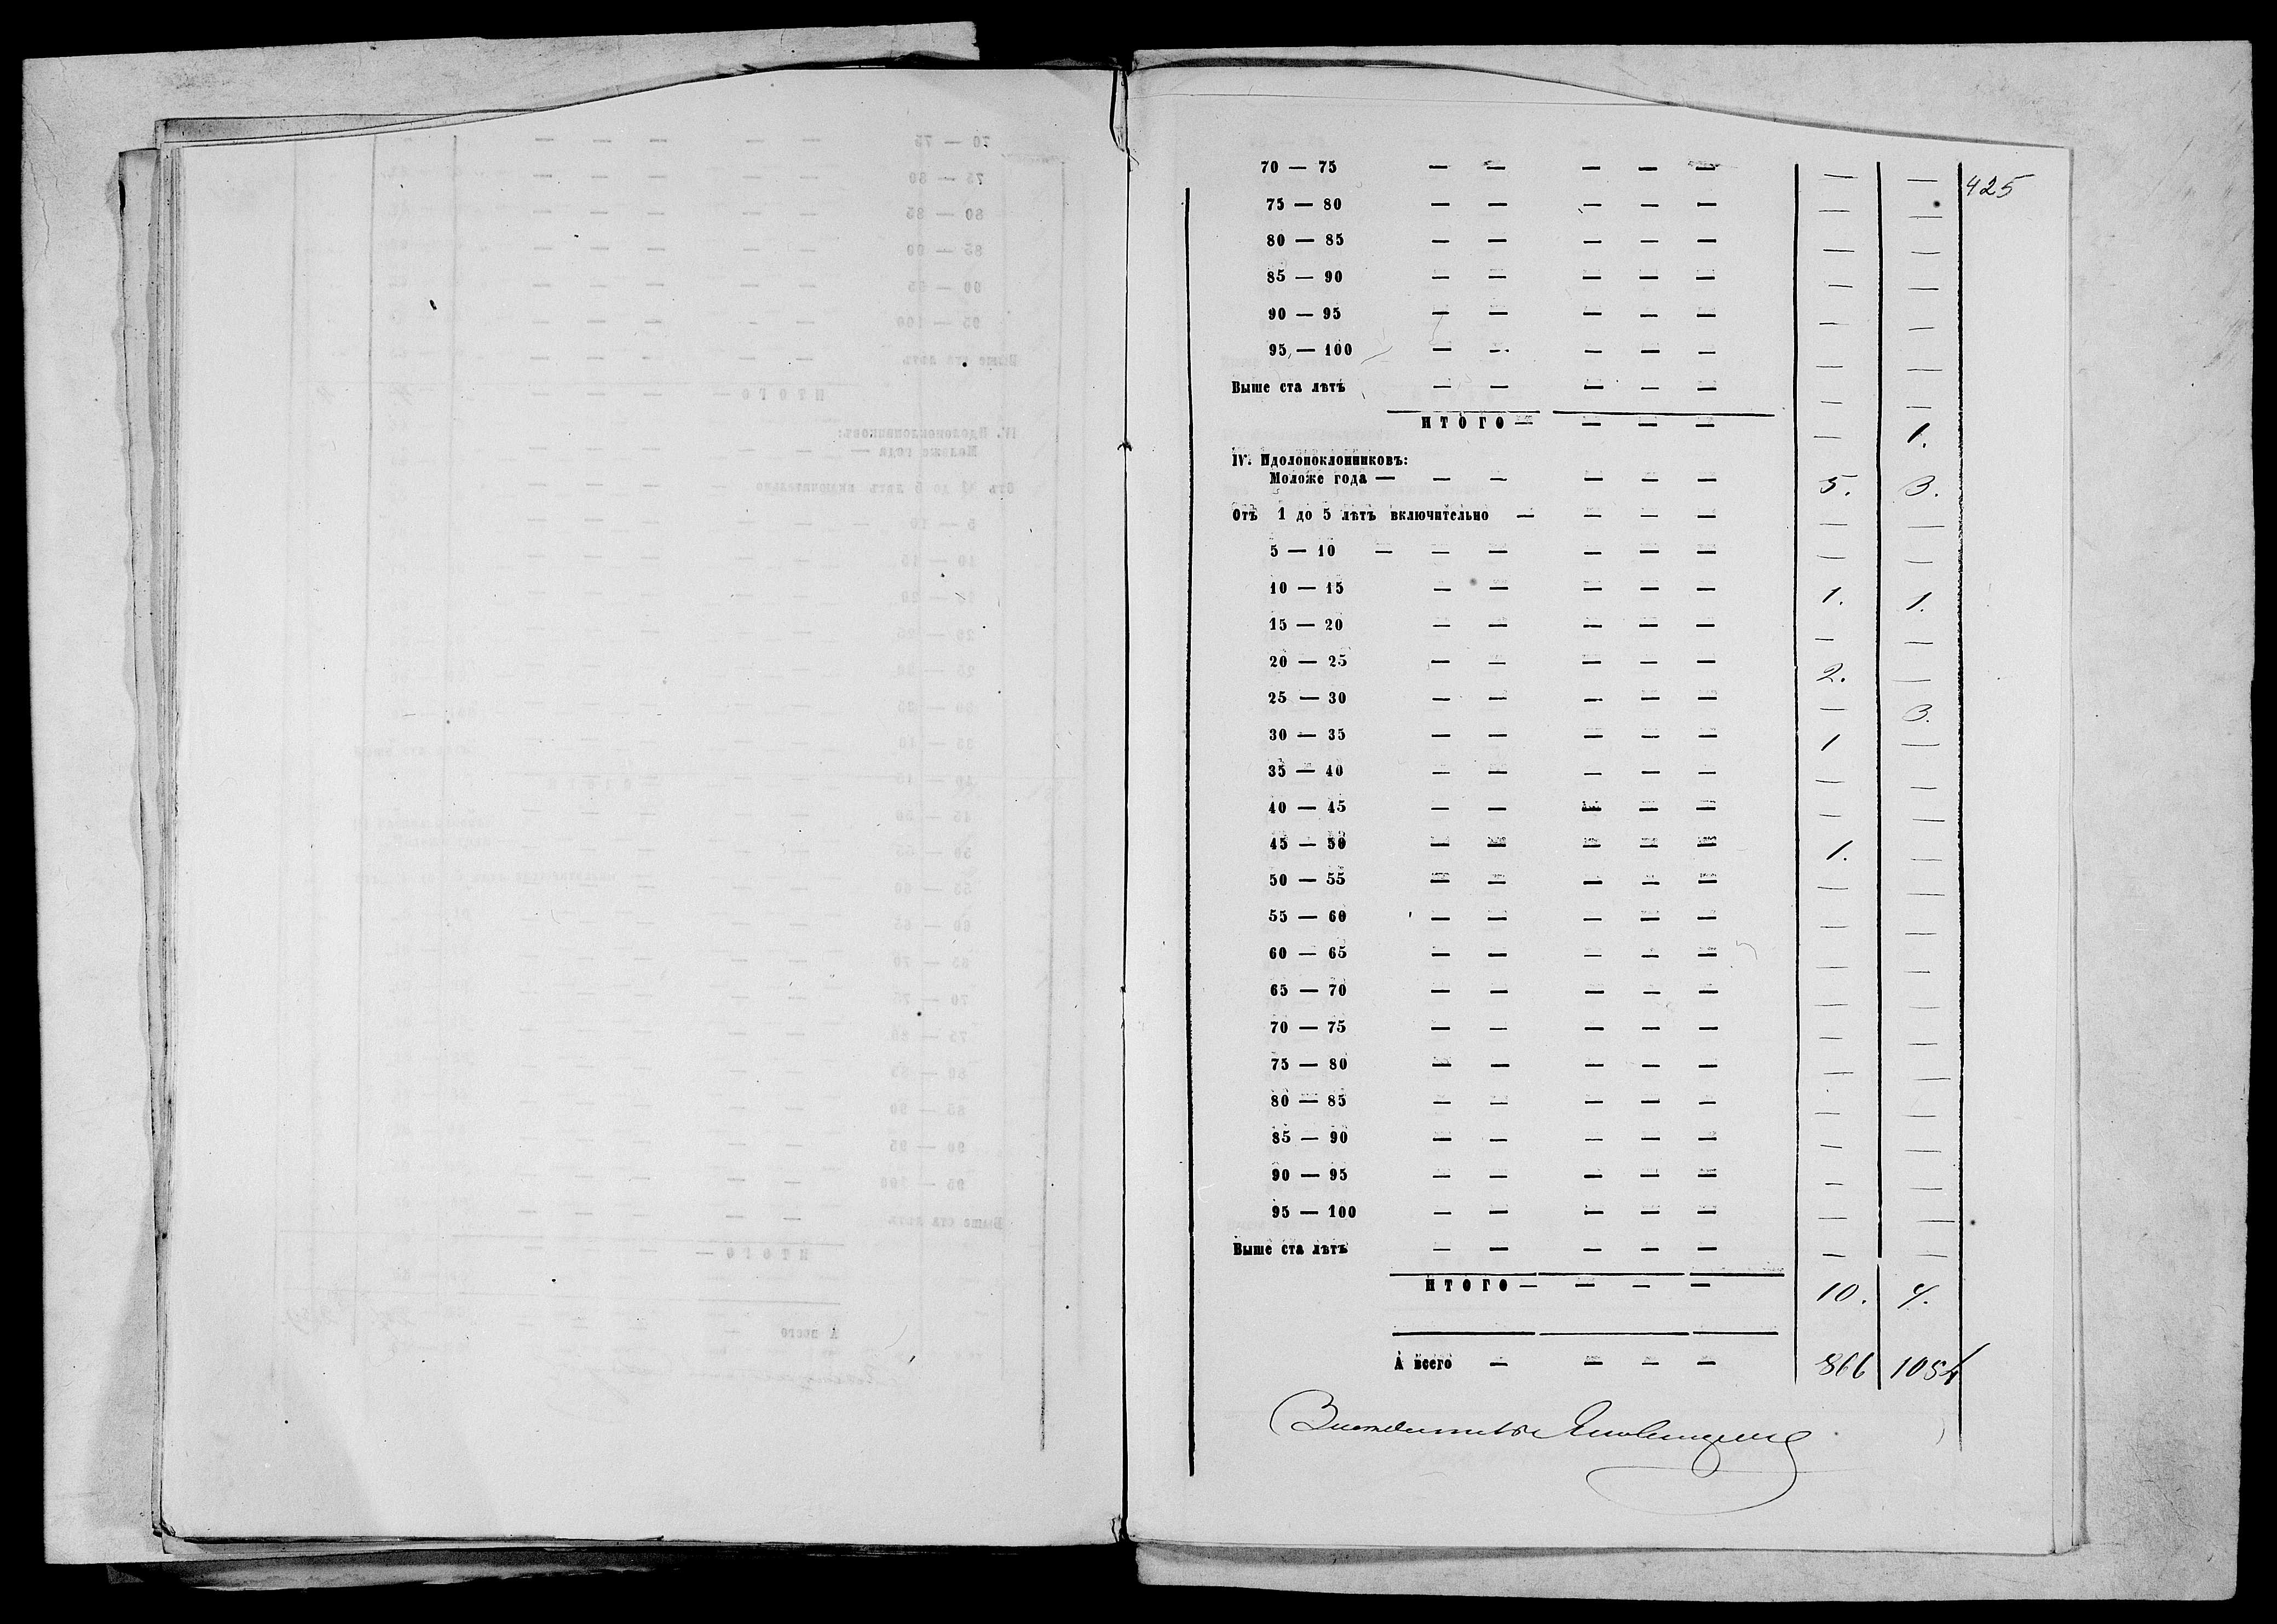 425
70 — 75 — — — — — — —
75 — 80 — — — — — — —
80 — 85 — — — — — — —
85 — 90 — — — — — — —
90 — 95 — — — — — — —
95 — 100 — — — — — — —
Выше ста лѣтъ — — — — — — —
ИТОГО — — — — — 1.
IV. Идолопоклонниковъ:
Моложе года — — — — — — 5. 3.
Отъ 1 до 5 лѣтъ включительно — — — — — —
5 — 10 — — — — — — — —
10 — 15 — — — — — 1. 1.
15 — 20 — — — — — — —
20 — 25 — — — — — 2. —
25 — 30 — — — — — — 3.
30 — 35 — — — — — 1 —
35 — 40 — — — — — — —
40 — 45 — — — — — — —
45 — 50 — — — — — 1. —
50 — 55 — — — — — — —
55 — 60 — — — — — — —
60 — 65 — — — — — — —
65 — 70 — — — — — — —
70 — 75 — — — — — — —
75 — 80 — — — — — — —
80 — 85 — — — — — — —
85 — 90 — — — — — — —
90 — 95 — — — — — — —
95 — 100 — — — — — — —
Выше ста лѣтъ — — — — — — —
ИТОГО — — — — 10. 4.
А всего — — — — 866 1054